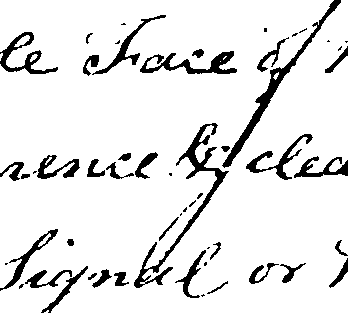 le Face of
rence & clea
Signal or